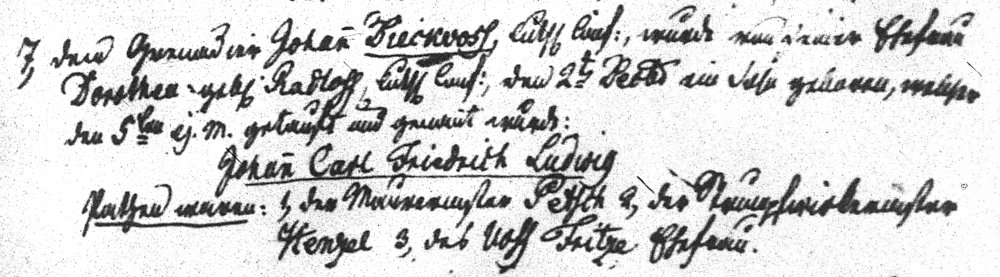 7, dem Grenadier Johañ Dieckvoss, luth. Conf:, wurde von seiner Ehefrau
Dorothea geb. Radloff, luth. Conf:, den 2t Decbr ein Sohn geboren, welcher
den 5ten ej. M. getauft und genant wurde:
Johañ Carl Friedrich Ludwig
Pathen waren: 1, der Maurermster Petsch 2, der Strumpfwirkermster
Henzel 3, des Fritze Ehefrau.